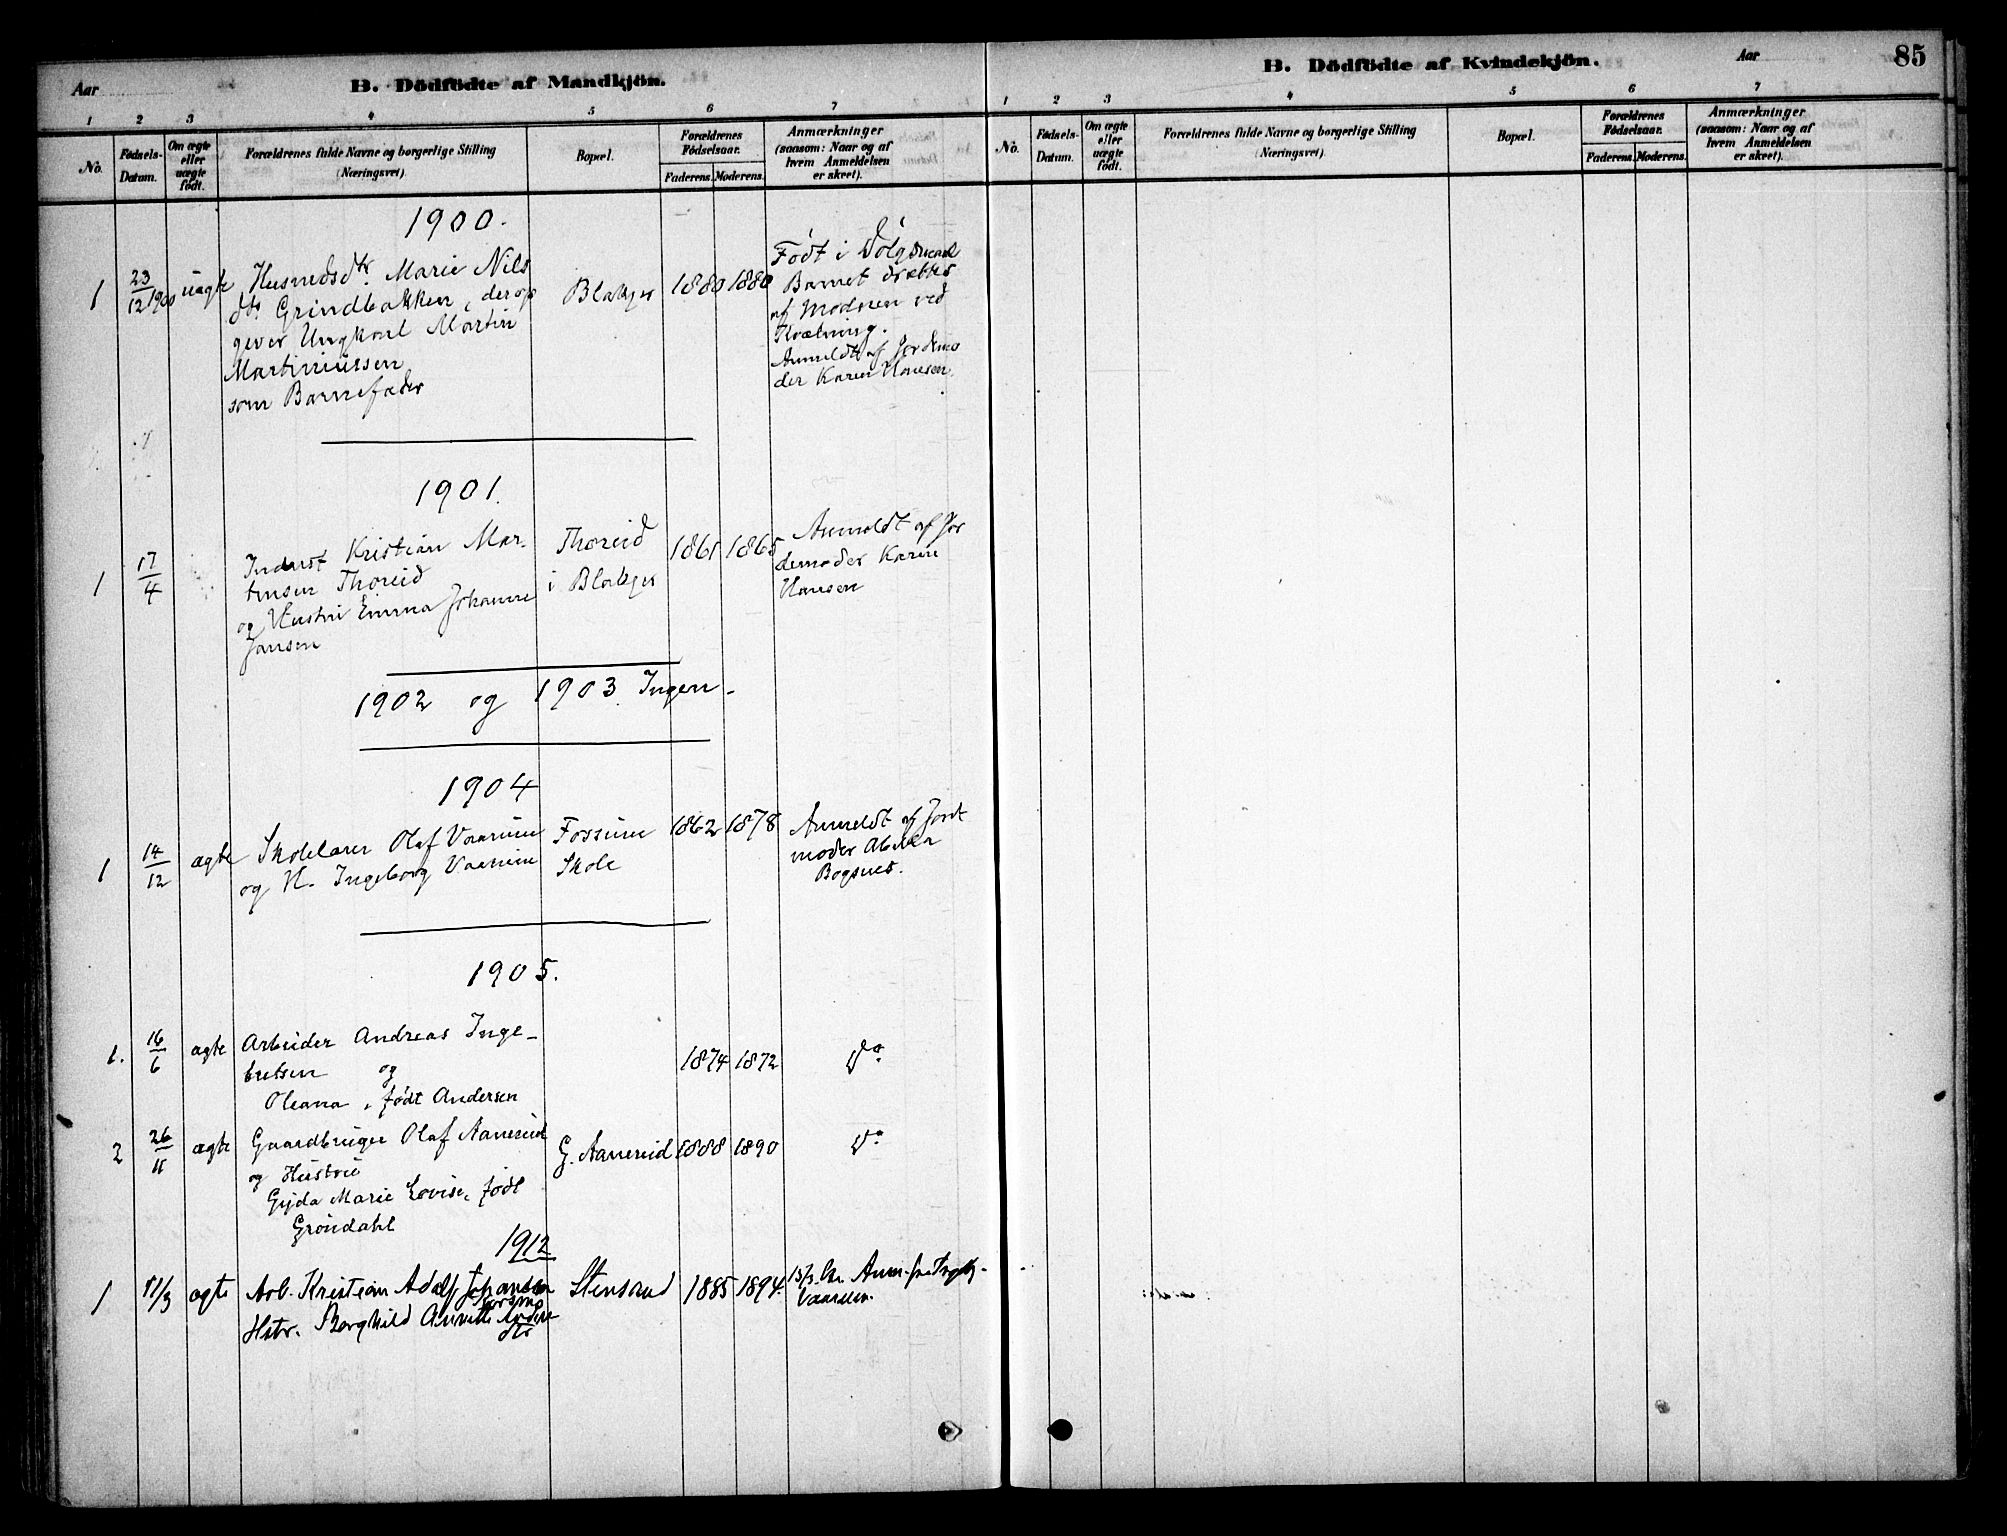 Aar
B. Dödfödte af Mandkjön.
1 2 3 4 5 6 7
No.
Födsels-
Datum.
Om ægte
eller
uægte
födt.
Forældrenes fulde Navne og borgerlige Stilling
(Næringsvei)
Bopæl.
Forældrenes
Födselsaar.
Faderens. Moderens.
Anmærkninger
(saasom: Naar og af
hvem Anmeldelsen
er skeet).
1900.
1 23/12 1900 uægte
Husmdsdtr. Marie Nils
dtr Grindbakken, derop
giver Ungkarl Martin
Martiniussen
som Barnefader
Blakjer
1880 1880
Født i Dølgsmaal
Barnet dræbtes
af Moderen ved
Kvælning.
Anmeldt af Jordemo
der Karen Hansen.
1901.
1 17/4
Inderst Kristian Mar-
tinsen Thoreid
og Hustru Emma Johanne
Jansen
Thoreid
i Blakjer
1861 1865
Anmeldt af Jor
demoder Karen
Hansen
1902 og 1903. Ingen-
1904
1 14/12 ægte
Skolelærer Olaf Vaarum
og H. Ingeborg Vaarum
Fossum
Skole
1862 1878
Anmeldt af Jord
moder
Bogsnes.
1905.
1. 16/6 ægte
Arbeider Andreas Inge-
bretsen og
Oleana, født Andersen
1874 1872
Do
2 26/11 ægte
Gaardbruger Olaf Aanerud
og Hustru
Gyda Marie Lovise, født
Gröndahl
G. Aanerud
1888 1890
Do
1912
1 11/3 ægte
Arb. Kristian Adolf Johansen
Hstr. Borghild Annette
dtr
Stensrud
1885 1894.
Vaarslen.
85
B. Dödfödte af Kvindekjön.
Aar
1 2 3 4 5 6 7
No.
Födsels-
Datum.
Om ægte
eller
uægte
födt.
Forældrenes fulde Navne og borgerlige Stilling
(Næringsvei)
Bopæl.
Forældrenes
Födselsaar.
Faderens. Moderens.
Anmærkninger
(saasom: Naar og af
hvem Anmeldelsen
er skeet).